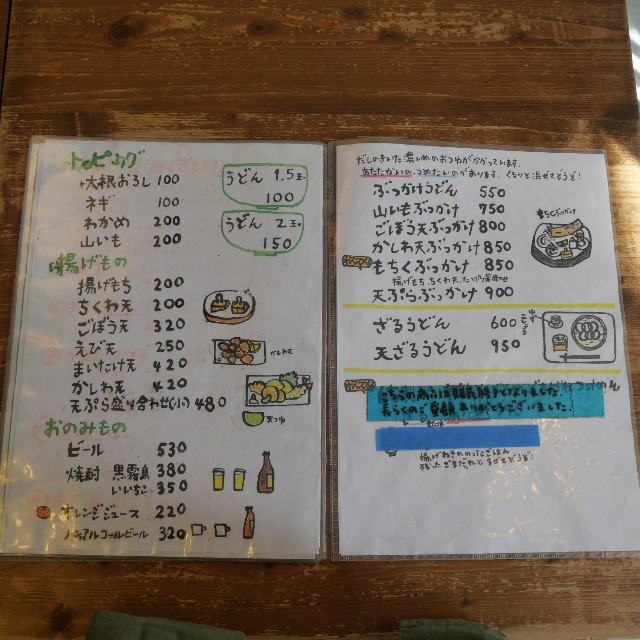 トッピング
+大根おろし 100
ネギ 100
わかめ 200
山いも 200
うどん 1.5玉
100
うどん 2玉
150
揚げもの
揚げもち 200
ちくわ天 200
ごぼう天 320
えび天 250
まいたけ天 420
かしわ天 420
天ぷら盛り合わせ(小) 480
かしわ天
天つゆ
おのみもの
ビール 530
焼酎 黒霧島 380
いいちこ 350
オレンジジュース 220
ノンアルコールビール 320
だしのきいた濃いめのおつゆがかかっています。
あたたかいの、つめたいのがあります。ぐるりと混ぜてどうぞ!
ぶっかけうどん 550
山いもぶっかけ 750
ごぼう天ぶっかけ 800
かしわ天ぶっかけ 850
もちくぶっかけ 850
揚げもち ちくわ天
天ぷらぶっかけ 900
もちくぶっかけ
ざるうどん 600
天ざるうどん 950
こちらの商品は
長らくのご愛顧ありがとうございました。
揚げねぎののったごはん
残ったごまだれとまぜてどうぞ